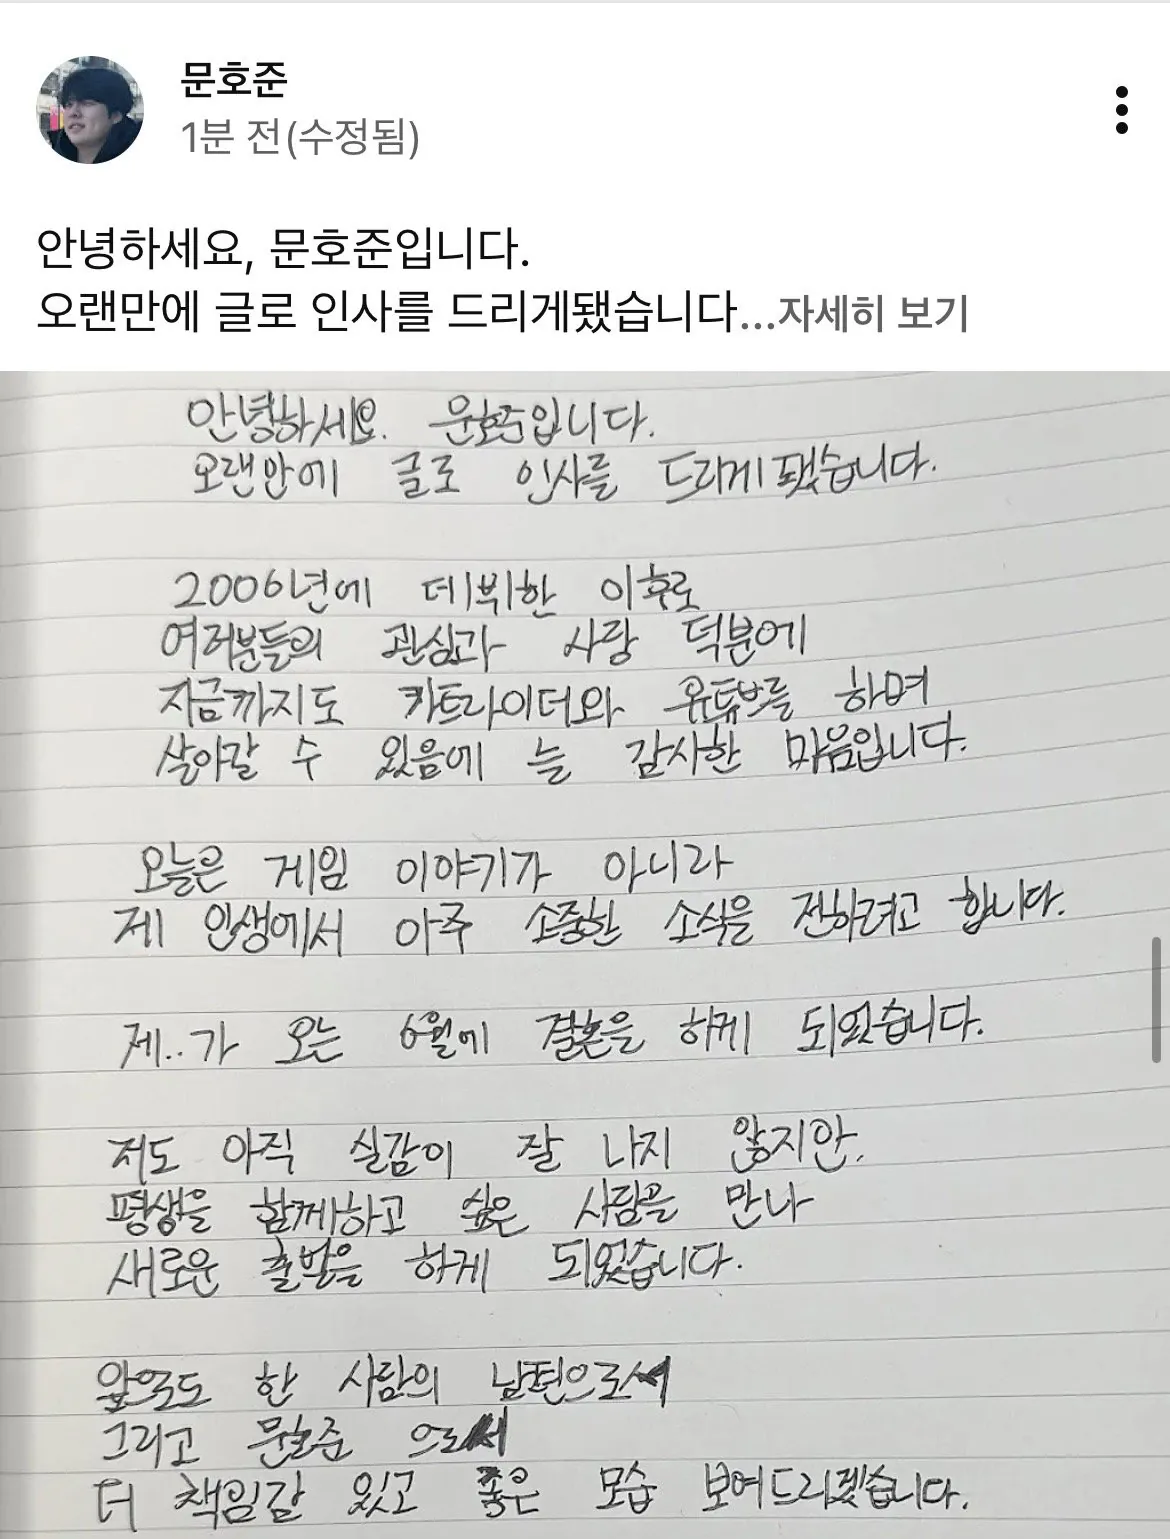 문호준
1분 전(수정됨)
안녕하세요, 문호준입니다.
오랜만에 글로 인사를 드리게됐습니다...자세히 보기
안녕하세요. 문호준입니다.
오랜만에 글로 인사를 드리게 됐습니다.
2006년에 데뷔한 이후로
여러분들의 관심과 사랑 덕분에
지금까지도 카트라이더와 유튜브를 하며
살아갈 수 있음에 늘 감사한 마음입니다.
오늘은 게임 이야기가 아니라
제 인생에서 아주 소중한 소식을 전하려고 합니다.
제..가 오는 6월에 결혼을 하게 되었습니다.
저도 아직 실감이 잘 나지 않지만,
평생을 함께하고 싶은 사람을 만나
새로운 출발을 하게 되었습니다.
앞으로도 한 사람의 남편으로서
그리고 문호준 으로서
더 책임감 있고 좋은 모습 보여드리겠습니다.